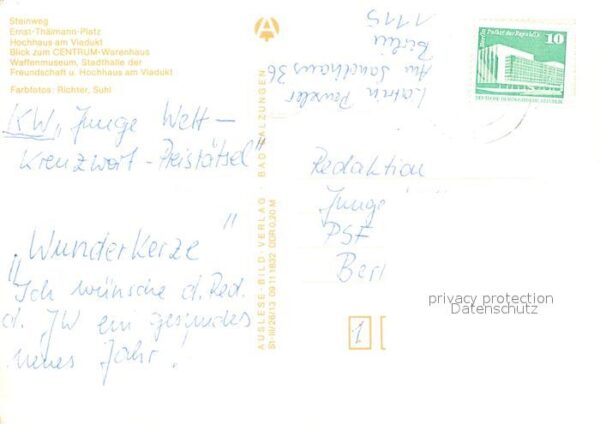 Steinweg
Ernst-Thälmann-Platz
Hochhaus am Viadukt
Blick zum CENTRUM-Warenhaus
Waffenmuseum, Stadthalle der
Freundschaft u. Hochhaus am Viadukt
Farbfotos: Richter, Suhl
KW „Junge Welt –
Kreuzwort-Preisrätsel"
„Wunderkerze"
Ich wünsche d. Red.
d. JW ein gesundes
neues Jahr!
AUSLESE-BILD-VERLAG · BAD SALZUNGEN
St-III/26/13 09 11 1832 DDR 0,20 M
Am Sandhaus 36
Berlin
1115
Berlin Palast der Republik
10
DEUTSCHE DEMOKRATISCHE REPUBLIK
Redaktion
Junge
PSF
Berl
1
privacy protection
Datenschutz